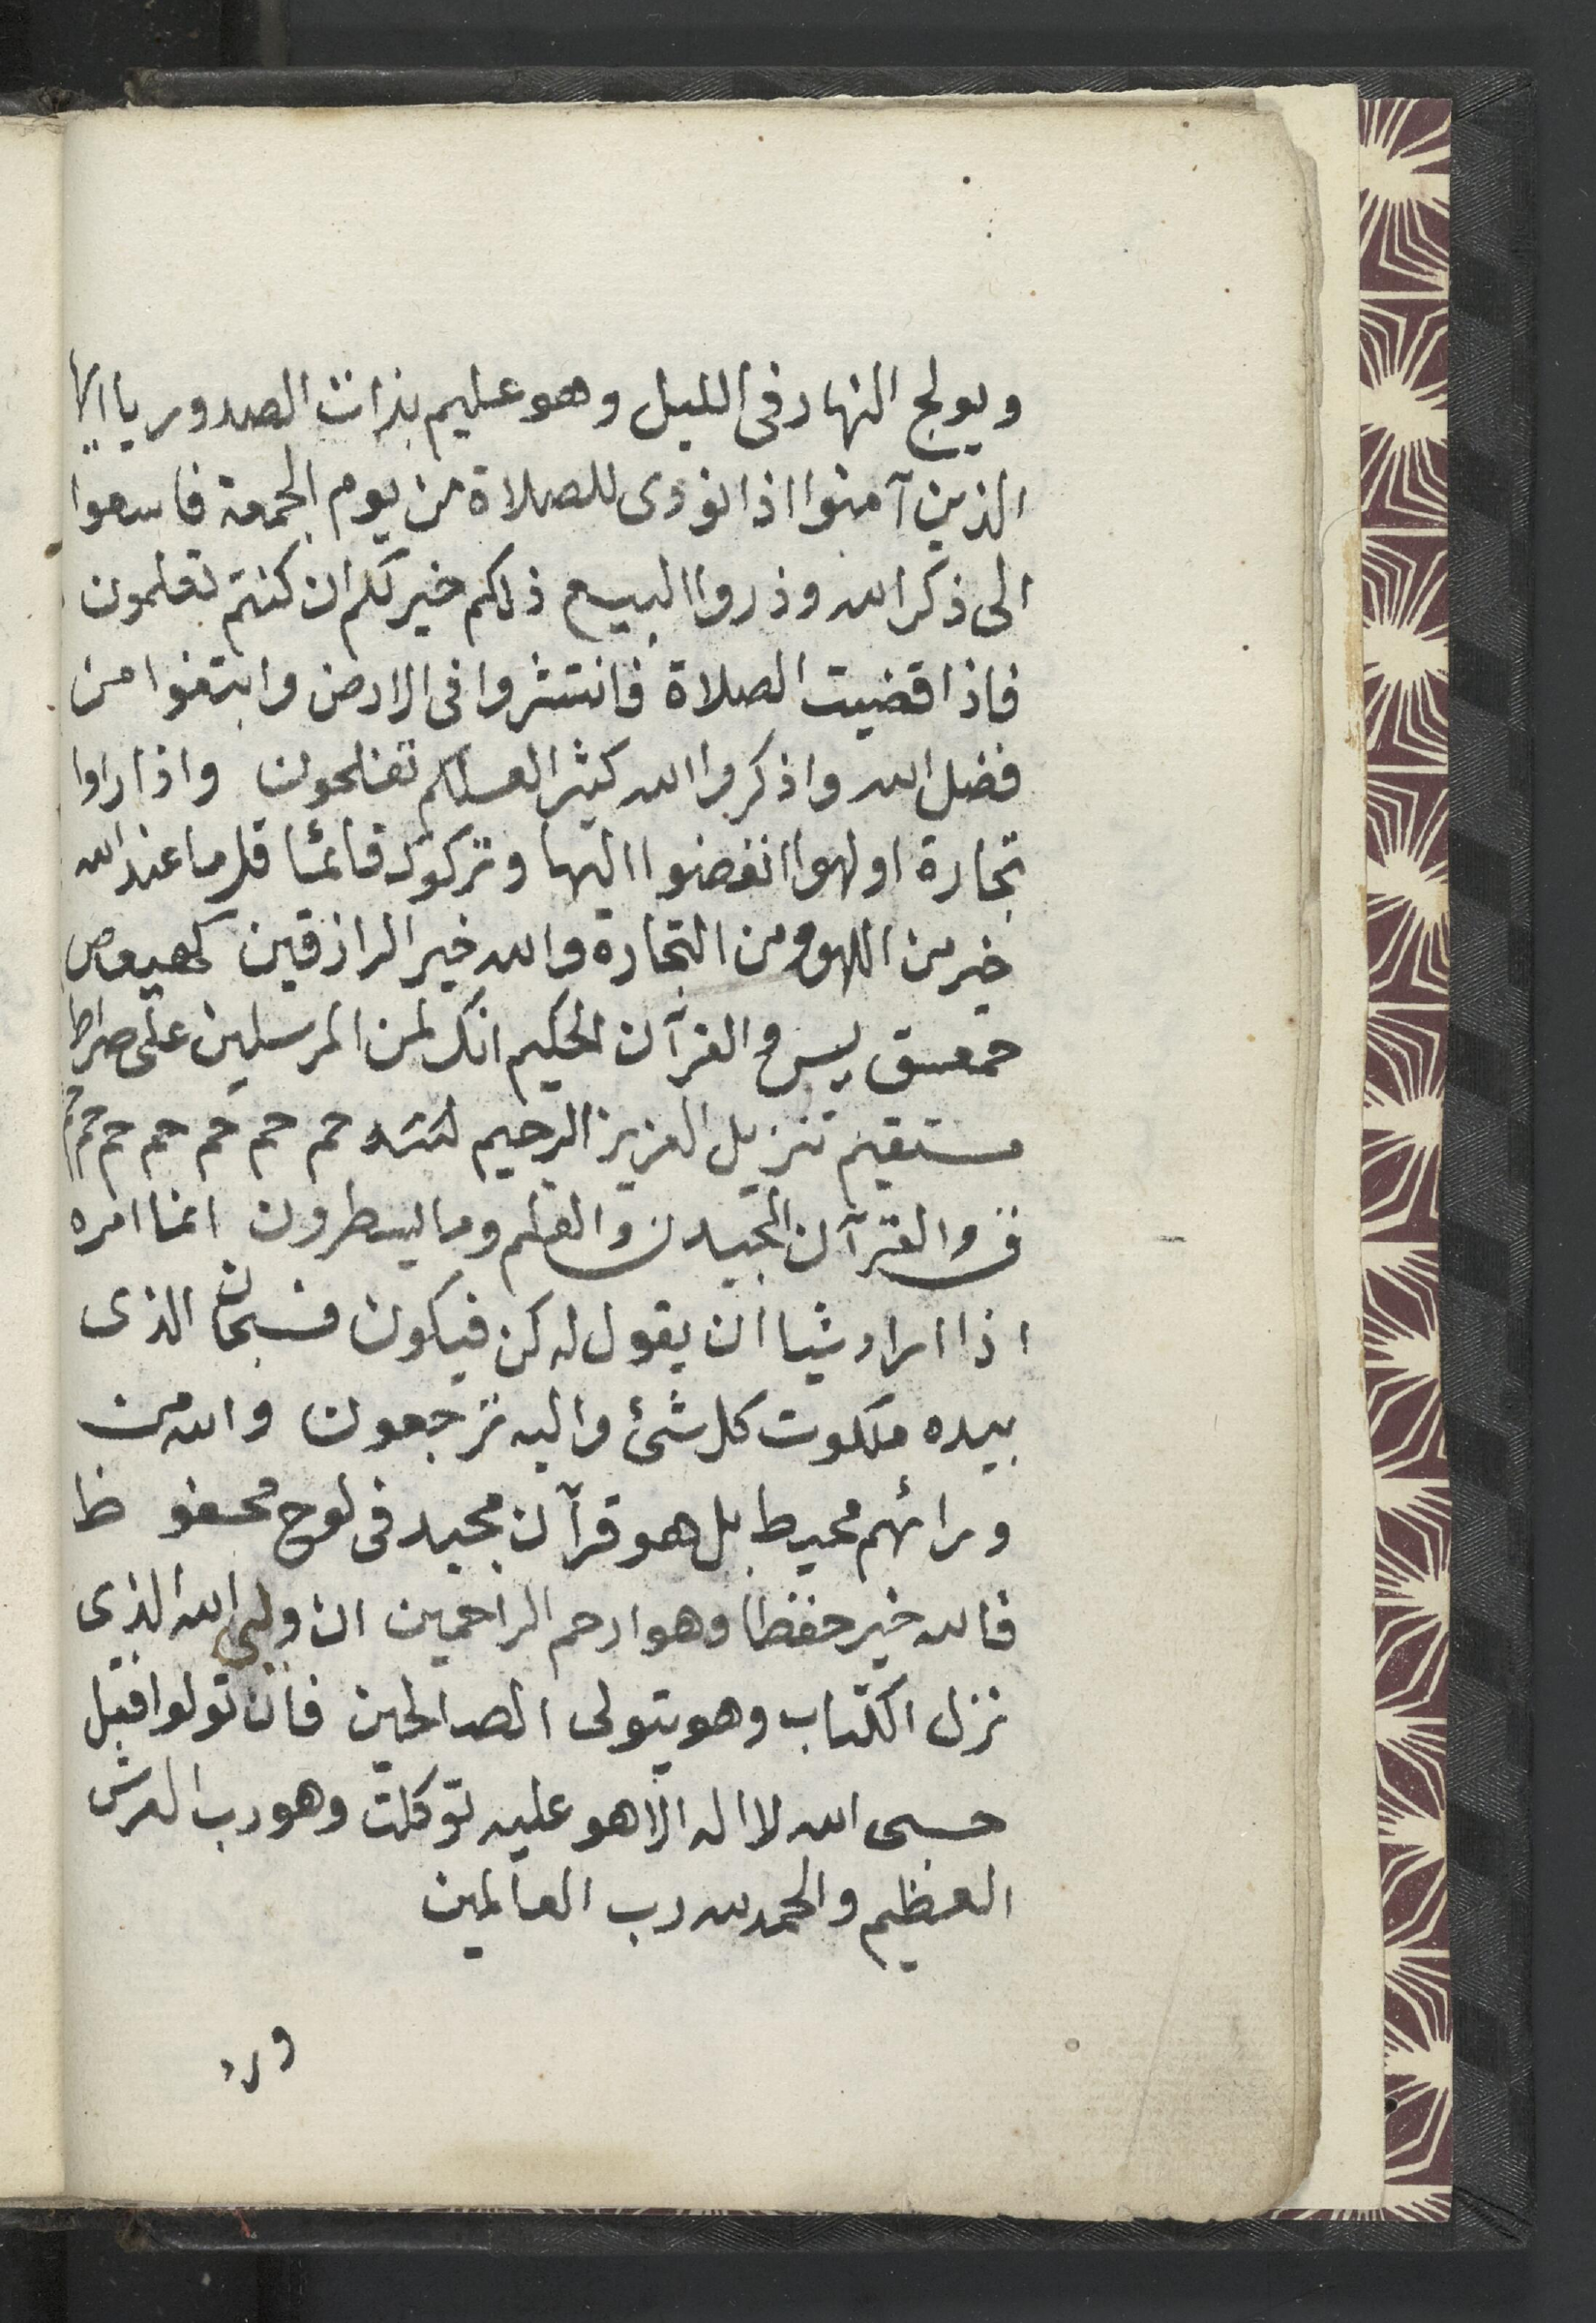 ويولج النهار فى الليل وهو عليم بذات الصدور يا ايها
الذين آمنوا اذا نودى للصلاة من يوم الجمعة فاسعوا
الى ذكر الله وذروا البيع ذلكم خير لكم ان كنتم تعلمون
فاذا قضيت الصلاة فانتشروا فى الارض وابتغوا من
فضل الله واذكروا الله كثيرا لعلكم تفلحون واذا راوا
تجارة او لهوا انفضوا اليها وتركوك قائما قل ما عند الله
خير من اللهو ومن التجارة والله خير الرازقين كهيعص
حمعسق يس والقرآن الحكيم انك لمن المرسلين على صراط
مستقيم تنزيل العزيز الرحيم حم حم حم حم حم حم
ق والقرآن المجيد ن والقلم وما يسطرون انما امره
اذا اراد شيا ان يقول له كن فيكون فسبحان الذى
بيده ملكوت كل شئ واليه ترجعون والله من
ورائهم محيط بل هو قرآن مجيد فى لوح محفو ظ
فالله خير حفظا وهو ارحم الراحمين ان وليى الله الذى
نزل الكتاب وهو يتولى الصالحين فان تولوا فقل
حسبى الله لا اله الا هو عليه توكلت وهو رب العرش
العظيم والحمد لله رب العالمين